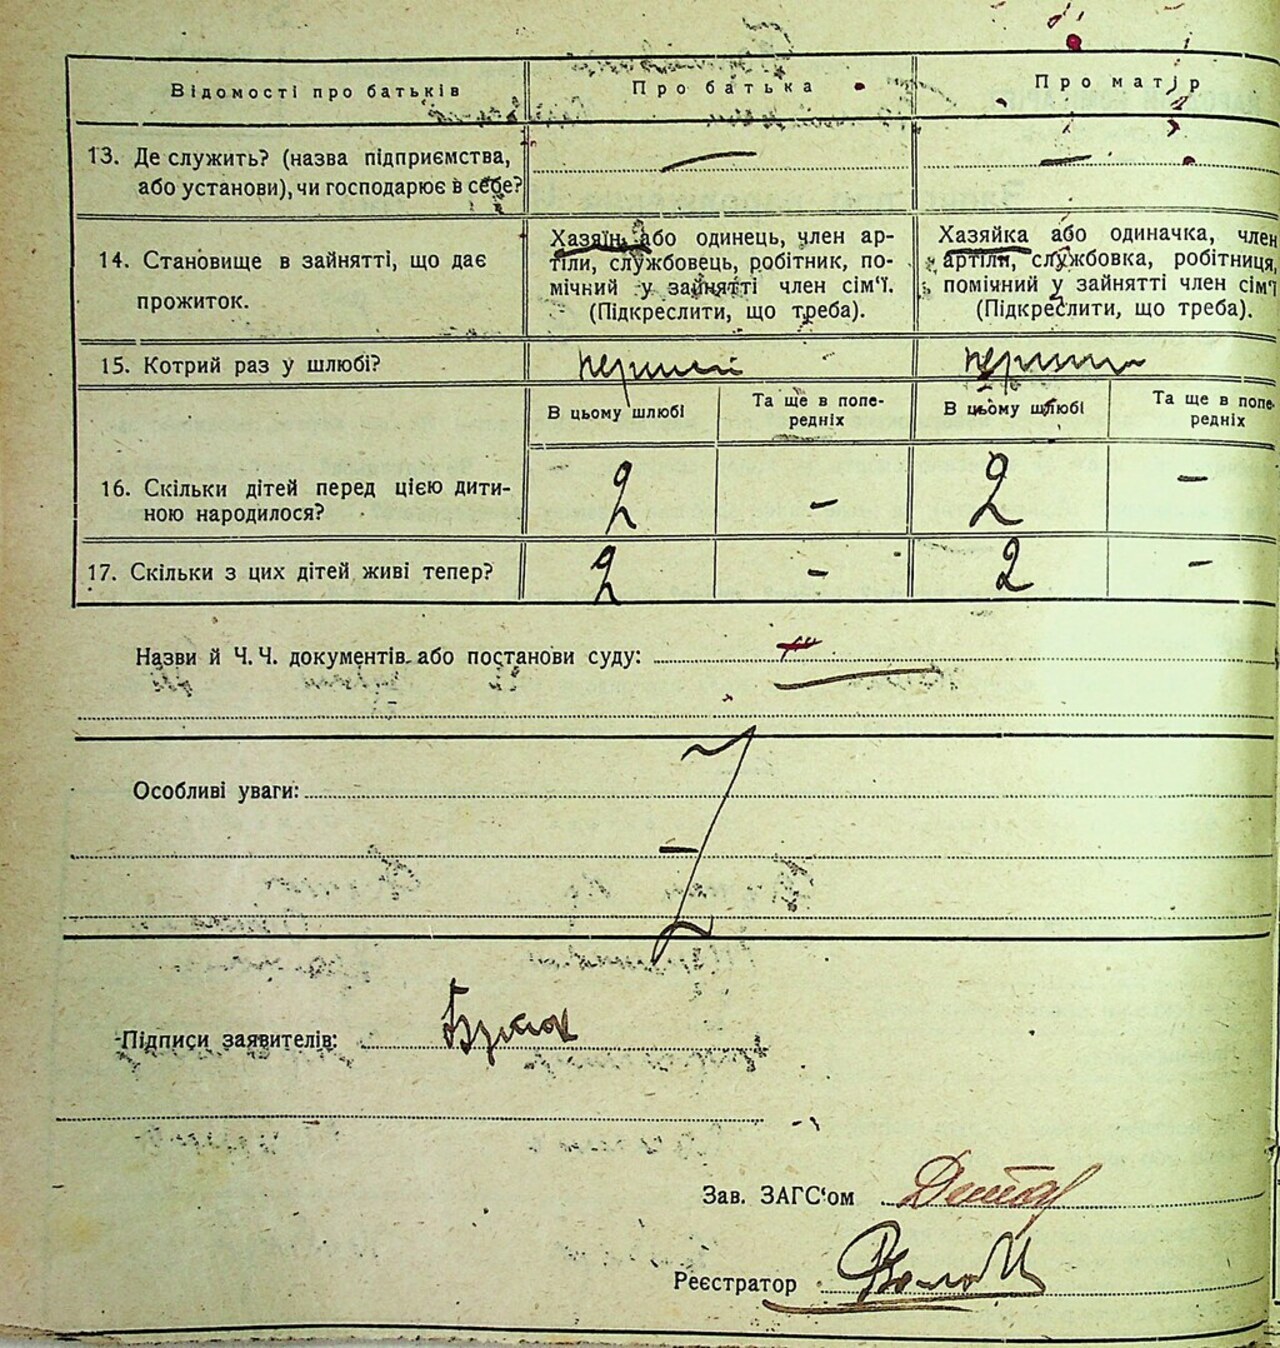 Відомості про батьків Про батька Про матір
13. Де служить? (назва підприємства, або установи), чи господарює в себе? — —
14. Становище в зайнятті, що дає прожиток.
Хазяїн або одинець, член ар-
тіли, службовець, робітник, по-
мічний у зайнятті член сім'ї.
(Підкреслити, що треба).
Хазяйка або одиначка, член
артіли, службовка, робітниця,
помічний у зайнятті член сім'ї
(Підкреслити, що треба).
15. Котрий раз у шлюбі? перший перший
В цьому шлюбі Та ще в попе-
редніх В цьому шлюбі Та ще в попе-
редніх
16. Скільки дітей перед цією дити-
ною народилося? 2 – 2 –
17. Скільки з цих дітей живі тепер? 2 – 2 –
Назви й Ч. Ч. документів або постанови суду:
Особливі уваги:
Підписи заявителів:
Зав. ЗАГС'ом
Реєстратор